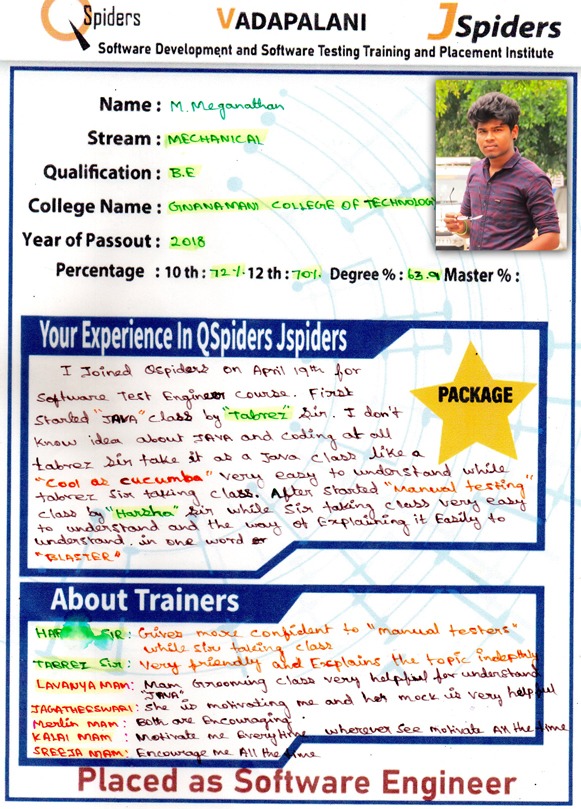 QSpiders VADAPALANI JSpiders
Software Development and Software Testing Training and Placement Institute
Name : M. Meganathan
Stream : MECHANICAL
Qualification : B.E
College Name : GNANAMANI COLLEGE OF TECHNOLOGY
Year of Passout : 2018
Percentage : 10 th : 72% 12 th : 70% Degree % : 63.9 Master % :
Your Experience In QSpiders Jspiders
PACKAGE
I Joined Qspiders on April 19th for
Software Test Engineer course. First
Started "JAVA" class by "Tabrez" Sir. I don't
know idea about JAVA and coding at all
tabrez sir take it as a Java class like a
"Cool as cucumba" very easy to understand while
tabrez Sir taking class. After started "Manual testing"
class by "Harsha" Sir while Sir taking class very easy
to understand and the way of Explaining it Easily to
understand. in one word or
"BLASTER"
About Trainers
SIR : Gives more confident to "Manual testers"
while sir taking class
TABREZ Sir : Very friendly and Explains the topic indepthly
LAVANYA MAM : Mam Grooming class very helpful for understand
"JAVA"
JAGATHEESWARI : She is motivating me and her mock is very helpful
Merlin MAM : Both are Encouraging.
KALAI MAM : Motivate me Everytime wherever see motivate All the time
SREEJA MAM : Encourage me All the time
Placed as Software Engineer